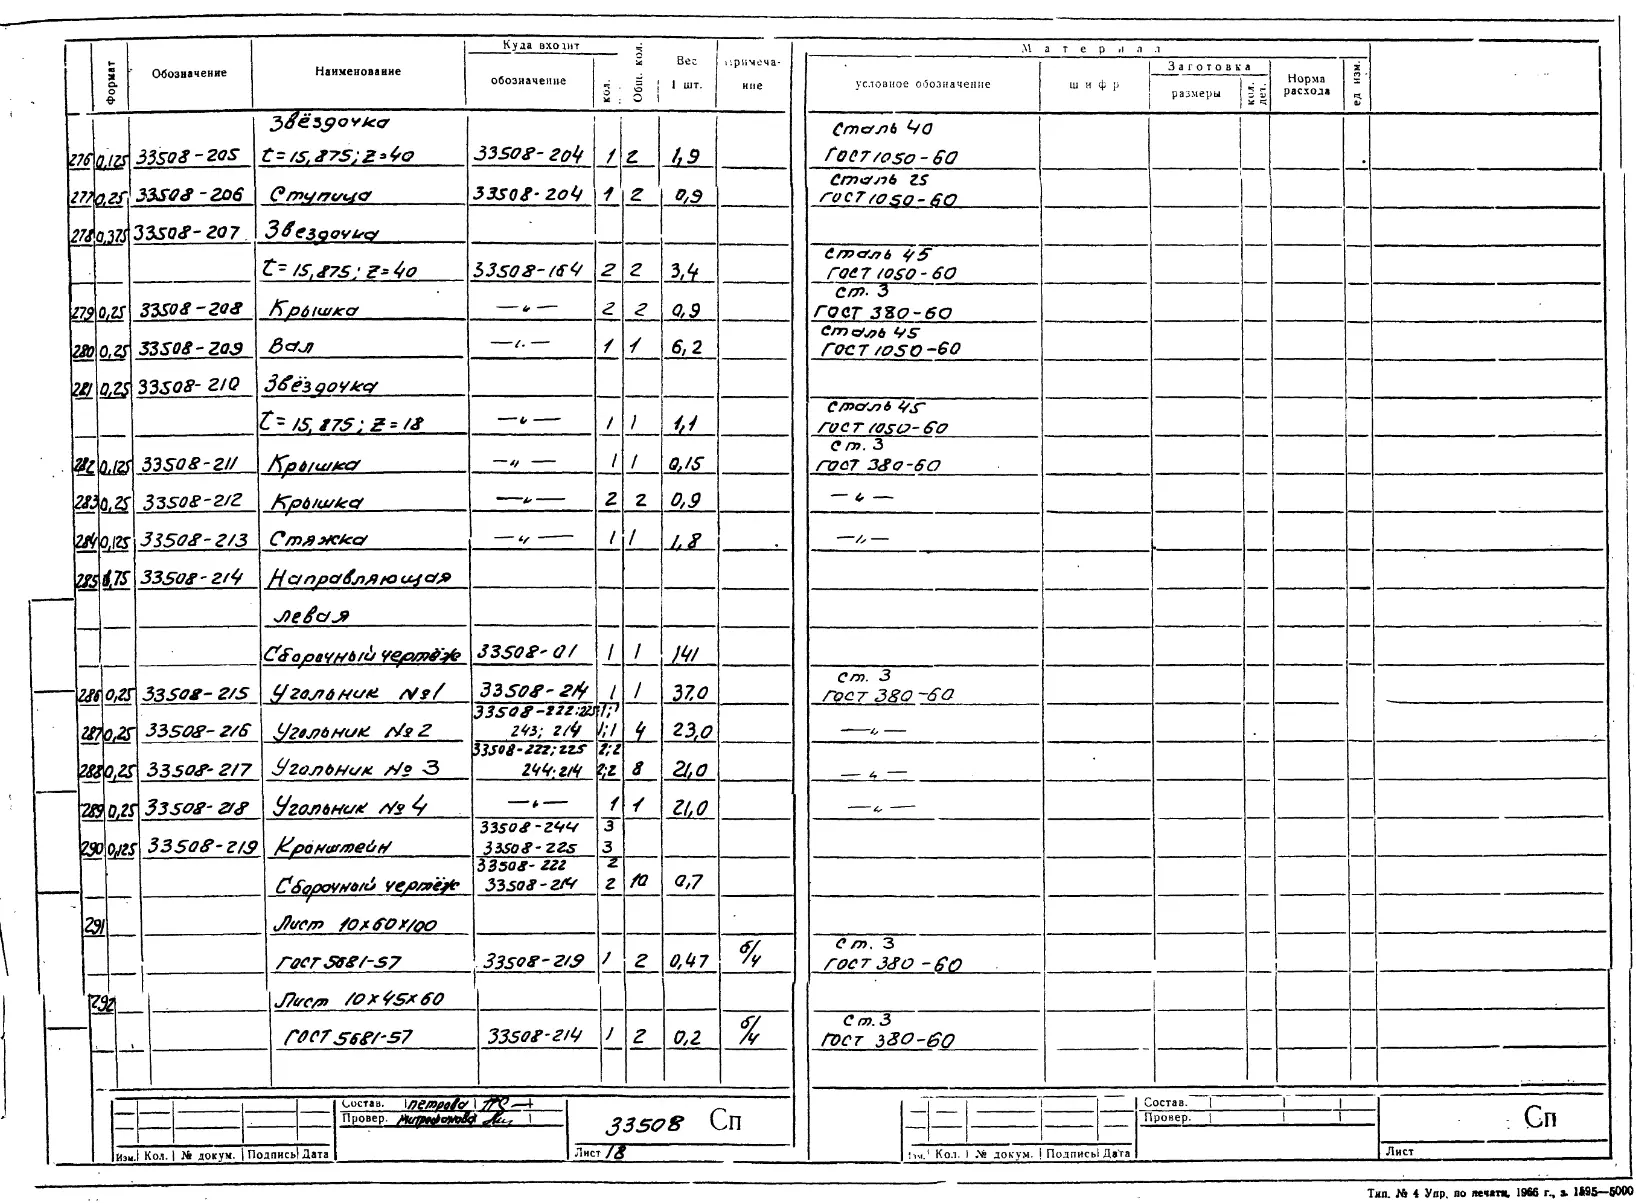 Формат Обозначение Наименование Куда входит обозначение кол. Общ. кол. Вес 1 шт. примеча- ние Материал условное обозначение шифр Заготовка размеры кол. дет. Норма расхода ед изм.
Звёздочка Сталь 40
276 0,125 33508-205 t=15,875; Z=40 33508-204 1 2 1,9 ГОСТ 1050-60
Сталь 25
277 0,25 33508-206 Ступица 33508-204 1 2 0,9 ГОСТ 1050-60
278 0,375 33508-207 Звездочка
Сталь 45
t=15,875; Z=40 33508-164 2 2 3,4 ГОСТ 1050-60
ст. 3
279 0,25 33508-208 Крышка —"— 2 2 0,9 ГОСТ 380-60
Сталь 45
280 0,25 33508-209 Вал —"— 1 1 6,2 ГОСТ 1050-60
281 0,25 33508-210 Звёздочка
Сталь 45
t=15,875; Z=18 —"— 1 1 1,1 ГОСТ 1050-60
ст. 3
282 0,125 33508-211 Крышка —"— 1 1 0,15 ГОСТ 380-60
283 0,25 33508-212 Крышка —"— 2 2 0,9 —"—
284 0,125 33508-213 Стяжка —"— 1 1 1,8 —"—
285 1,75 33508-214 Направляющая
левая
Сборочный чертёж 33508-01 1 1 141
ст. 3
286 0,25 33508-215 Угольник №1 33508-214 1 1 37.0 ГОСТ 380-60
33508-222;225 1;1
287 0,25 33508-216 Угольник №2 243; 214 1;1 4 23,0 —"—
33508-222; 225 2;2
288 0,25 33508-217 Угольник №3 244; 214 2;2 8 21,0 —"—
289 0,25 33508-218 Угольник №4 —"— 1 1 21,0 —"—
33508-244 3
290 0,125 33508-219 Кронштейн 33508-225 3
33508-222 2
Сборочный чертёж 33508-214 2 10 0,7
291 Лист 10х60х100
ст. 3
ГОСТ 5681-57 33508-219 1 2 0,47 б/ч ГОСТ 380-60
292 Лист 10х45х60
Ст.3
ГОСТ 5681-57 33508-214 1 2 0,2 б/ч ГОСТ 380-60
Состав. Петрова
Провер. Митрофанова
33508 Сп
Изм. Кол. № докум. Подпись Дата
Лист 18
Состав.
Провер.
Сп
Изм. Кол. № докум. Подпись Дата
Лист
Тип. № 4 Упр. по печати, 1966 г., з. 1895—5000